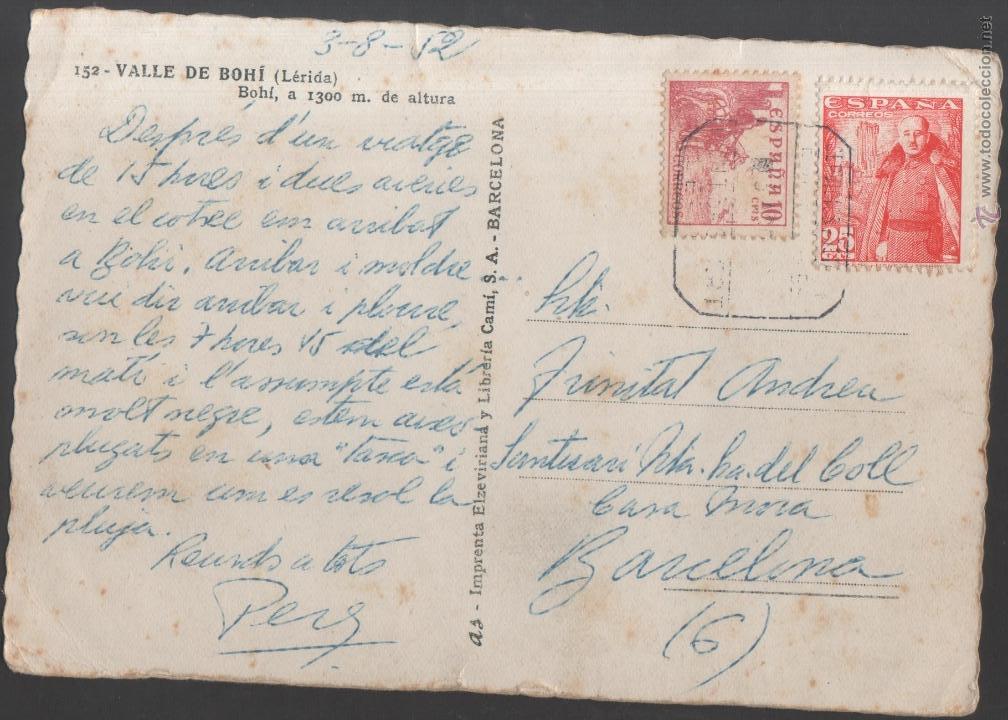 3-8-52
152 - VALLE DE BOHÍ (Lérida)
Bohí, a 1300 m. de altura
Després d'un viatge
de 15 hores i dues averies
en el cotxe em arribat
a Bohi. Arribar i moldre
vui dir arribar i ploure,
son les 7 hores 45 del
matí i l'assumpte está
molt negre, estem
plugats en una "Tasca" i
veurem com es resol la
pluja.
Records a tots
Pere
as - Imprenta Elzeviriana y Librería Camí, S. A. - BARCELONA
ESPAÑA 10
CTS
CORREOS
ESPAÑA
CORREOS
25
CTS
Trinitat Andreu
Santuari Nta. Sra. del Coll
Casa Mora
Barcelona
(6)
todocoleccion.net